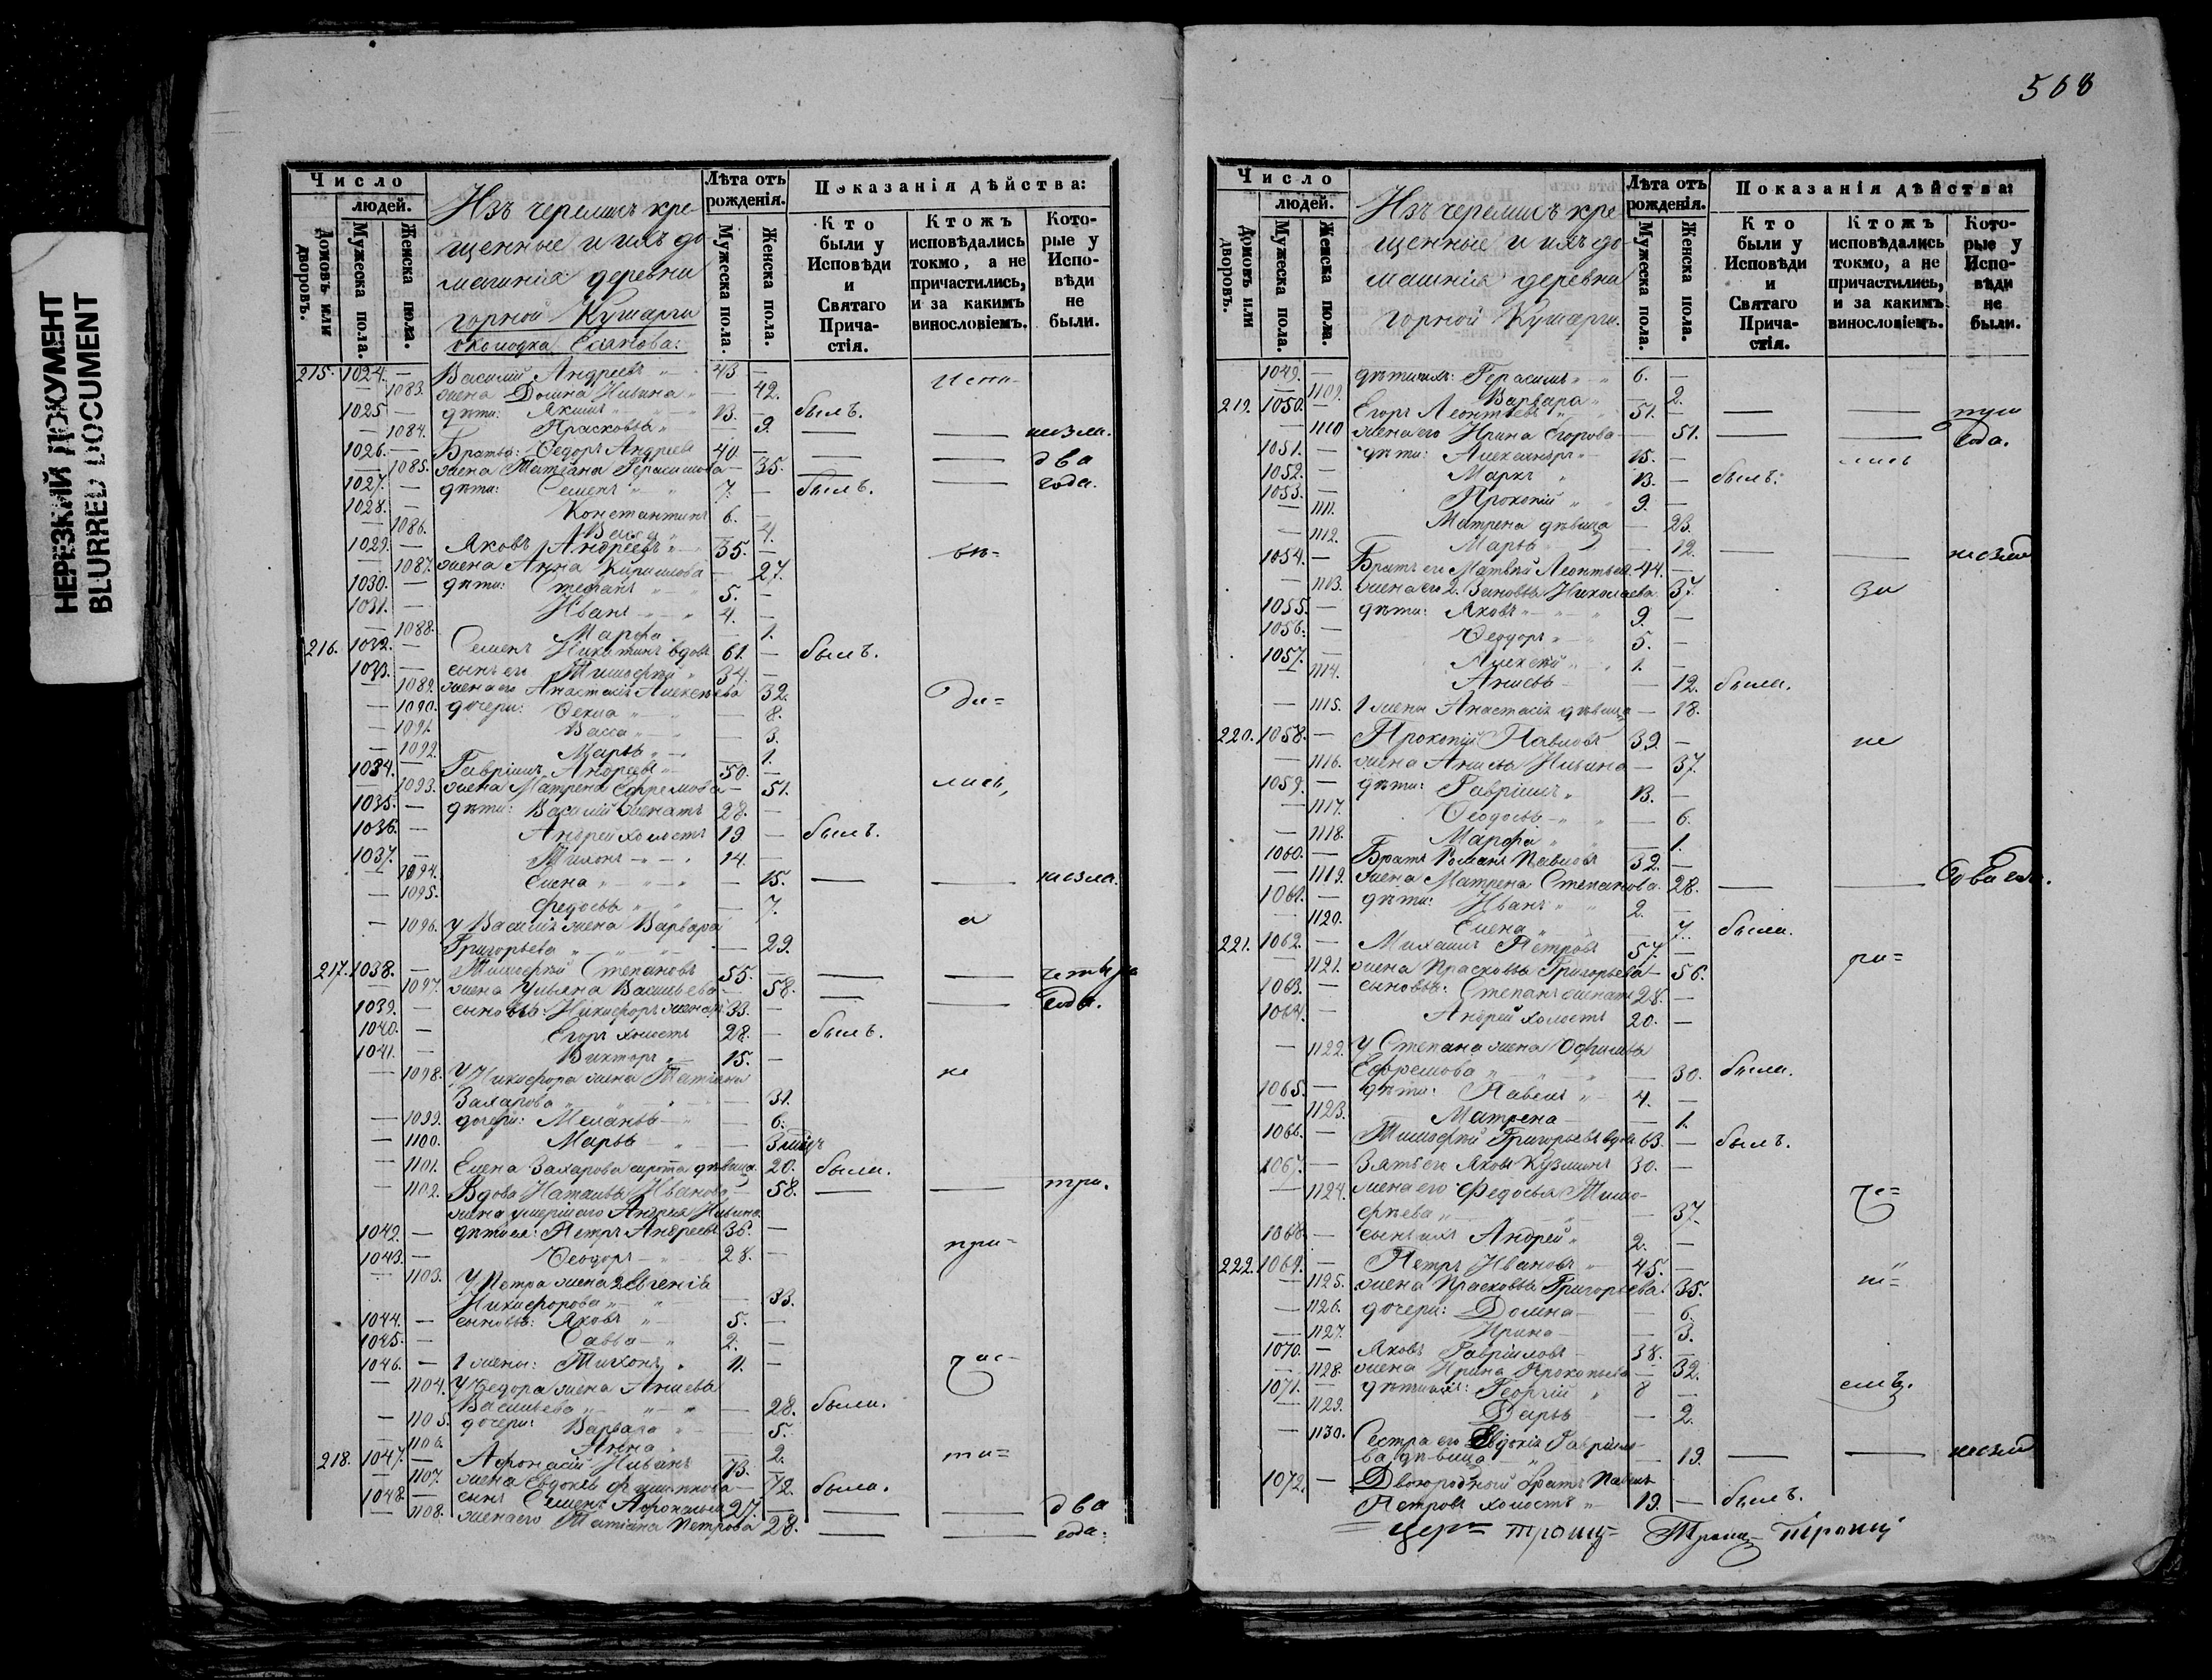 НЕРЕЗКИЙ ДОКУМЕНТ
BLURRED DOCUMENT
Число
людей.
Домовъ или дворовъ.
Мужеска пола.
Женска пола.
Изъ черемисъ кре-
щенные и ихъ до-
машнія деревни
горной Кушерги
околодка
Лѣта отъ рожденія.
Мужеска пола.
Женска пола.
Показанія дѣйства:
Кто были у Исповѣди и Святаго Прича-стія.
Ктожъ исповѣдались токмо, а не причастились, и за какимъ винословіемъ.
Кото-рые у Испо-вѣди не были.
215. 1024. — Василій Андреевъ 43 —
— 1083. жена Домна Ильина — 42. Испо-
1025 — дѣти: Якимъ 13. — былъ.
— 1084. Прасковья — 9. — — незна.
1026. — Братья: Ѳедоръ Андреевъ 40. — — — два
— 1085. жена Татіана Герасимова — 35.
1027. — дѣти: Семенъ 7. — былъ. — года.
1028. — Константинъ 6. —
— 1086. Васса — 4.
1029. — Яковъ Андреевъ 35. — вѣ-
— 1087. жена Анна Кирилова — 27.
1030. — дѣти: Стефанъ 5. —
1031. — Иванъ 4. —
— 1088. Марфа — 1.
216. 1032. — Семенъ Никитинъ вдовъ 61. — былъ.
1033. — сынъ его Тимофей 34. —
— 1089. жена его Анастасія Алексѣева 32. да-
— 1090. дочери: Ѳекла — 8.
— 1091. Васса — 3.
— 1092. Марья — 1.
1034. — Гавріилъ Андреевъ 50. —
— 1093. жена Матрена Ефремова — 51. лись,
1035. — дѣти: Василій женатъ 28. —
1036. — Андрей холостъ 19 — былъ.
1037. — Тихонъ 14. —
— 1094. Елена — 15. — —
— 1095. Федосья — 7.
— 1096. У Василія жена Варвара а
Григорьева — 29.
217. 1038. — Тимофей Степановъ 55. — — — четыре
— 1097. жена Ульяна Васильева — 58. — — года.
1039. — сыновья: Никифоръ женатъ 33. —
1040. — Егоръ холостъ 28. — былъ.
1041. — Викторъ 15. —
— 1098. У Никифора жена Татіана не
Захарова — 31.
— 1099. дочери: Меланья — 6.
— 1100. Марья — 3
— 1101. Елена Захарова сирота дѣвица 20. была.
— 1102. Вдова Наталья Иванова — 58. — — три.
жена умершаго Андрея Ильина
1042. — дѣти ея: Петръ Андреевъ 36. —
1043. — Ѳеодоръ 28. — при-
— 1103. У Петра жена 2 Евгенія
Никифорова — 33.
1044. — сыновья: Яковъ 5. —
1045. — Савва 2. —
1046. — 1 жены: Тихонъ 11. — час-
— 1104. У Ѳедора жена Анисья
Васильева — 28. была.
— 1105. дочери: Варвара — 5.
— 1106. Анна — 2.
218. 1047. — Афонасій Ильинъ 73. ти-
— 1107. жена Евдокія Филиппова — 72. была.
1048. — сынъ Семенъ Афонасьевъ 27. — — — два
— 1108. жена его Татіана Петрова 28. — — года.
568
Число
людей.
Домовъ или дворовъ.
Мужеска пола.
Женска пола.
Изъ черемисъ кре-
щенные и ихъ до-
машнія деревни
горной Кушерги.
Лѣта отъ рожденія.
Мужеска пола.
Женска пола.
Показанія дѣйства:
Кто были у Исповѣди и Святаго Прича-стія.
Ктожъ исповѣдались токмо, а не причастились, и за какимъ винословіемъ.
Кото-рые у Испо-вѣди не были.
1049. — дѣти ихъ: Герасимъ 6. —
— 1109. Варвара — 2.
219. 1050. — Егоръ Леонтьевъ 51. — — —
— 1110 жена его Ирина Егорова — 51. — — года.
1051. — дѣти: Александръ 15. — лись
1052. — Маркъ 13. — былъ.
1053. — Прокопій 9. —
— 1111. Матрена дѣвица — 23.
— 1112. Марья — 12. — —
1054. — Братъ его Матвѣй Леонтьевъ 44. —
— 1113. жена его 2. Зиновья Николаева 37. за
1055. — дѣти: Яковъ 9. —
1056. — Ѳеодоръ 5. —
1057. — Алексѣй 1. —
— 1114. Анисья — 12. была.
— 1115. 1 жены Анастасія дѣвица — 18.
220. 1058. — Прокопій Павловъ 39. — не
— 1116. жена Анисья Ильина — 37.
1059. — дѣти: Гавріилъ 13. —
— 1117. Ѳеодосья — 6.
— 1118. Марфа — 1.
1060. — Братъ Романъ Павловъ 32. —
— 1119. жена Матрена Степанова. 28. — —
1061. — дѣти: Иванъ 2. —
— 1120. Елена — 7. была.
221. 1062. — Михаилъ Петровъ 57. —
— 1121. жена Прасковья Григорьева — 56. ра-
1063. — сыновья: Степанъ женатъ 28. —
1064. — Андрей холостъ 20. —
— 1122. У Степана жена Офимья
Ефремова — 30. была.
1065. — дѣти: Павелъ 4. —
— 1123. Матрена — 1.
1066. — Тимофей Григорьевъ вдов. 63. — былъ.
1067. — Зять его Яковъ Кузминъ 30. —
— 1124. жена его Федосья Тимо-
фѣева — 37.
1068. — сынъ ихъ Андрей 2. —
222. 1069. — Петръ Ивановъ 45. —
— 1125. жена Прасковья Григорьева. 35.
— 1126. дочери: Домна — 6.
— 1127. Ирина — 3.
1070. — Яковъ Гавриловъ 38. —
— 1128. жена Ирина Прокопьева — 32.
1071. — дѣти ихъ: Георгій 8 —
— 1129. Дарья — 2.
— 1130. Сестра его Евдокія Гаврило-
ва дѣвица — 19. — —
1072. — Двоюродный братъ Павелъ
Петровъ холостъ 19. — былъ.